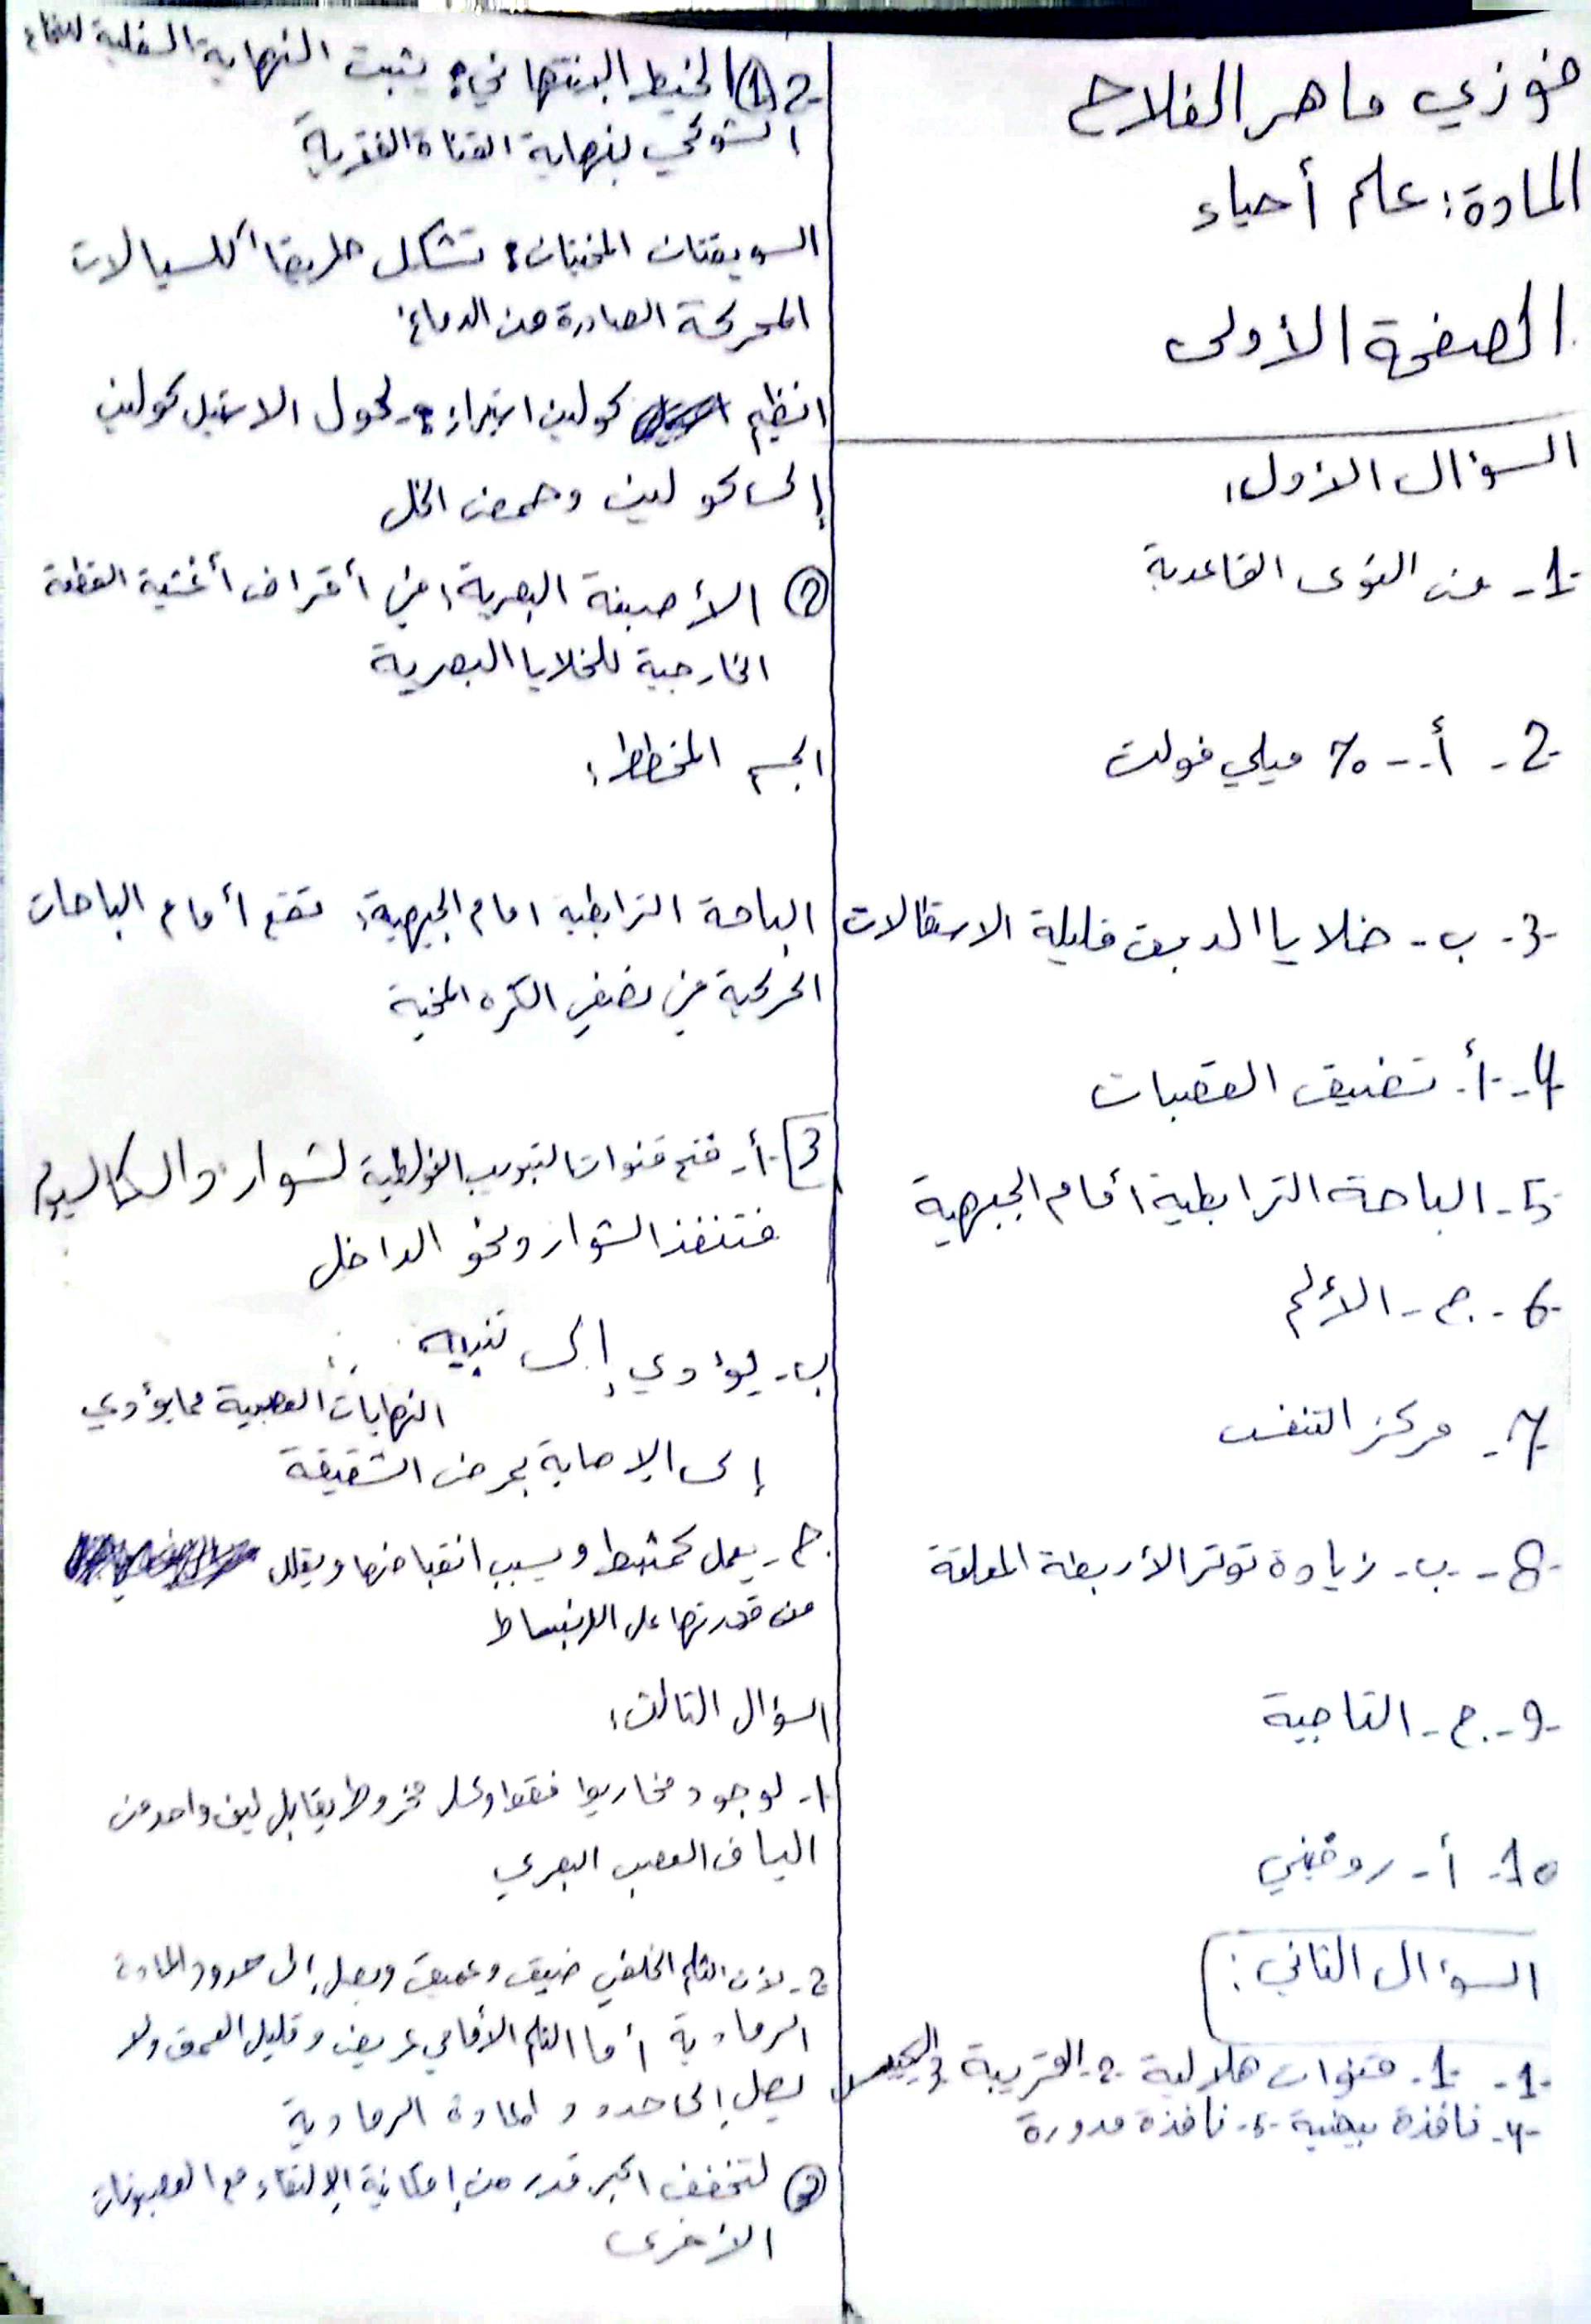 فوزي ماهر الفلاح
المادة: علم أحياء
الصفحة الأولى
السؤال الأول:
1- من النوى القاعدية
2- أ- -70 ميلي فولت
3- ب- خلايا الدبق قليلة الاستطالات
4- أ- تضيق القصبات
5- الباحة الترابطية أمام الجبهية
6- ج- الألم
7- مركز التنفس
8- ب- زيادة توتر الأربطة المعلقة
9- ج- التاجية
10- أ- روفيني
السؤال الثاني:
1- 1- قنوات هلالية 2- القريبة 3- الكييس
4- نافذة بيضية 5- نافذة مدورة
2- (1) الخيط الانتهائي: يثبت النهاية السفلية للنخاع
الشوكي بنهاية القناة الفقرية
السويقتان المخيتان: تشكل طريقاً للسيالات
المحركة الصادرة من الدماغ:
انظيم كولين استراز: تحول الاستيل كولين
إلى كولين وحمض الخل
(2) الأصبغة البصرية: في أقراص أغشية القطعة
الخارجية للخلايا البصرية
الجسم المخطط:
الباحة الترابطية امام الجبهية: تقع أمام الباحات
الحركية في نصفي الكره المخية
3 أ- فتح قنوات التبويب الفولطية لشوارد الكالسيوم
فتنفذ الشوارد نحو الداخل
ب- يؤدي إلى تنبيه
النهايات العصبية مما يؤدي
إلى الإصابة بمرض الشقيقة
ج- يعمل كمثبط ويسبب انقباضها ويقلل
من قدرتها على الانبساط
السؤال الثالث:
1- لوجود مخاريط فقط وكل مخروط يقابل ليف واحد من
الياف العصب البصري
2- لأن الثلم الخلفي ضيق وعميق ويصل إلى حدود المادة
الرمادية أما الثلم الأمامي عريض وقليل العمق ولا
يصل إلى حدود المادة الرمادية
(3) لتخفف اكبر قدر من إمكانية الالتقاء مع العصبونات
الأخرى